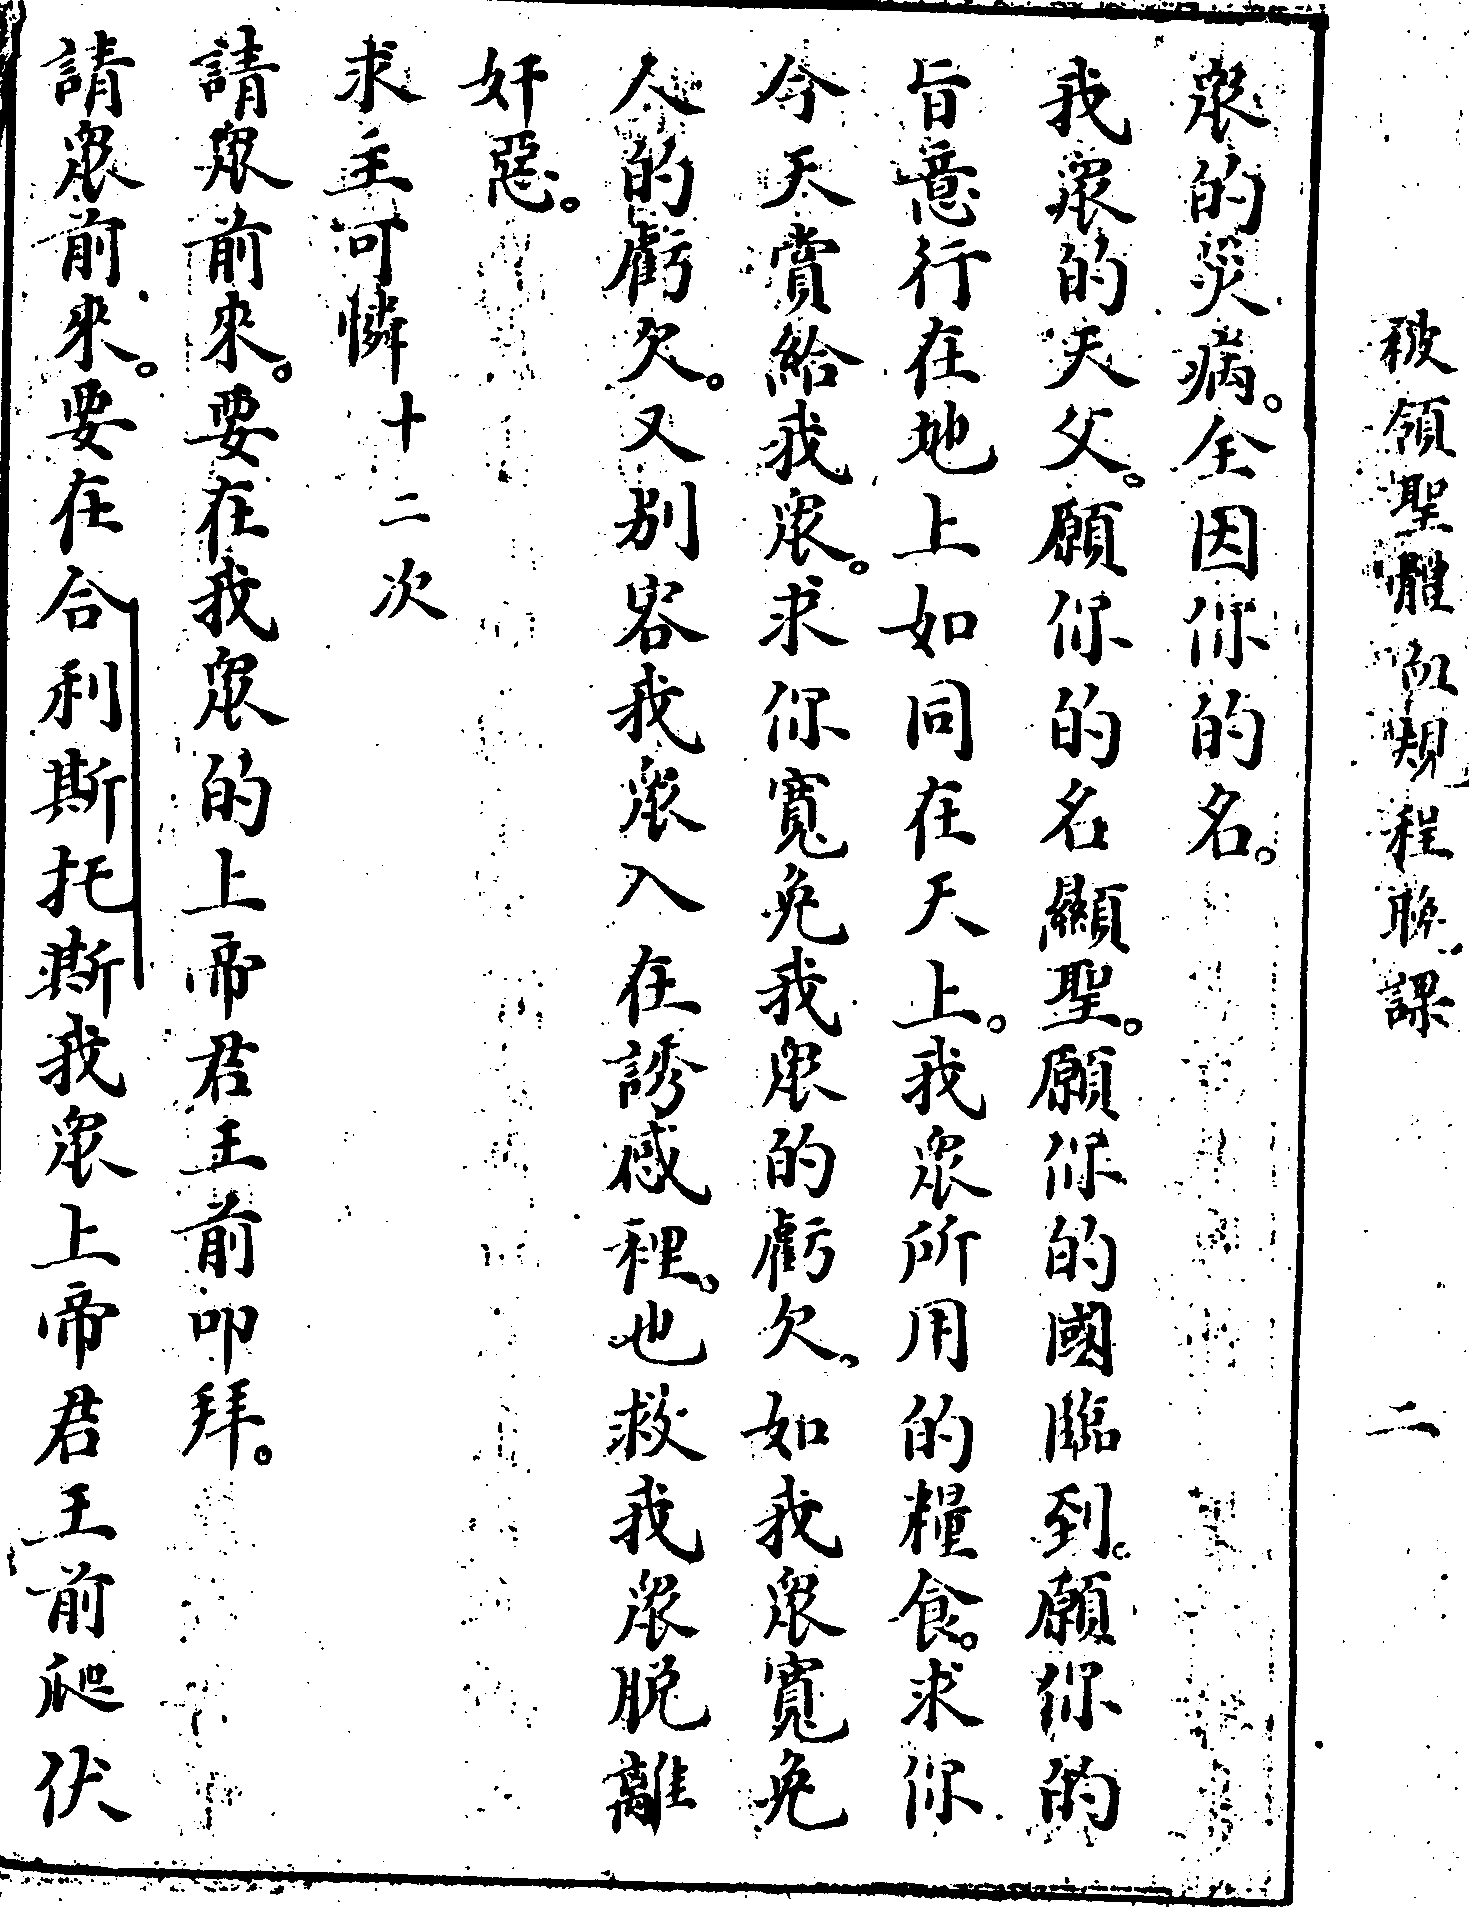 被領聖體血規程聯課 二
衆的災病。全因你的名。
我衆的天父。願你的名顯聖。願你的國臨到。願你的
旨意行在地上如同在天上。我衆所用的糧食。求你
今天賞給我衆。求你寬免我衆的虧欠。如我衆寬免
人的虧欠。又别容我衆入在誘感裡。也救我衆脱離
奸惡。
求主可憐 十二次
請衆前來。要在我衆的上帝君王前叩拜。
請衆前來。要在合利斯托斯我衆上帝君王前爬伏